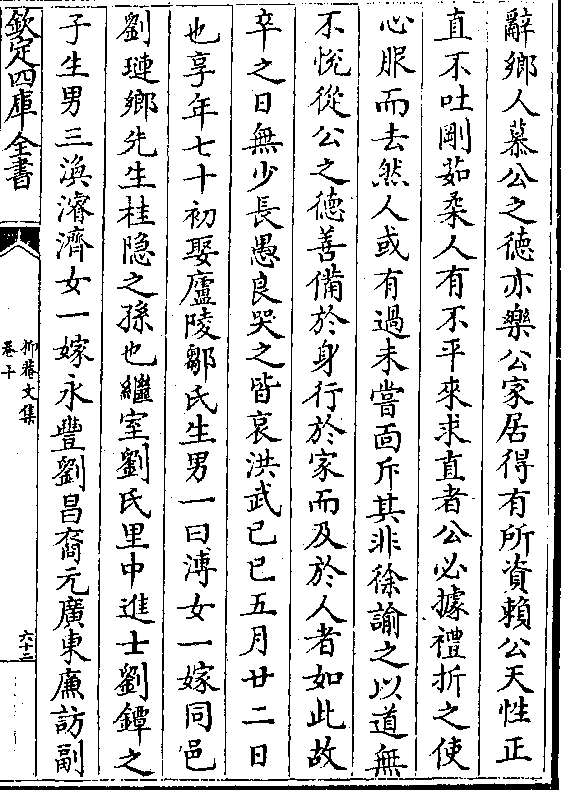 辭鄉人慕公之徳亦樂公家居得有所資頼公天性正
直不吐剛茹柔人有不平來求直者公必據禮折之使
心服而去然人或有過未嘗面斥其非徐諭之以道無
不恱從公之徳善備於身行於家而及於人者如此故
卒之日無少長愚良哭之皆哀洪武己巳五月廿二日
也享年七十初娶廬陵鄒氏生男一曰溥女一嫁同邑
劉璉鄉先生桂隐之孫也繼室劉氏里中進士劉鐔之
子生男三渙濬濟女一嫁永豐劉昌裔元廣東廉訪副
欽定四庫全書
抑菴文集
卷十
六十二